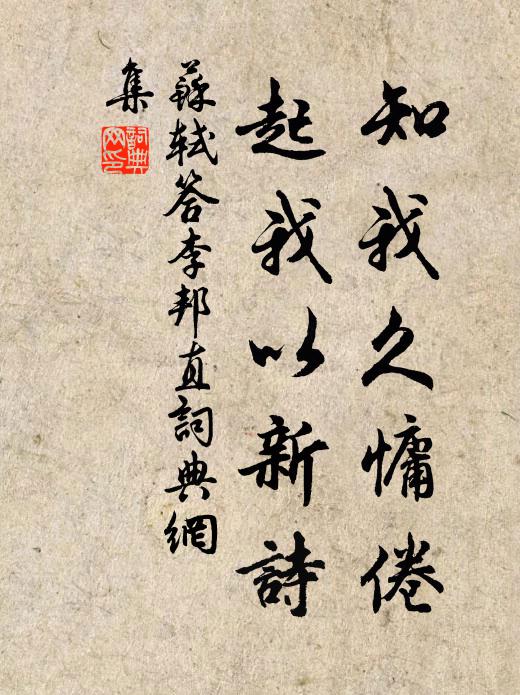 知我久慵倦
起我以新詩
蘇軾答李邦直詞典網
集
詞典
网印